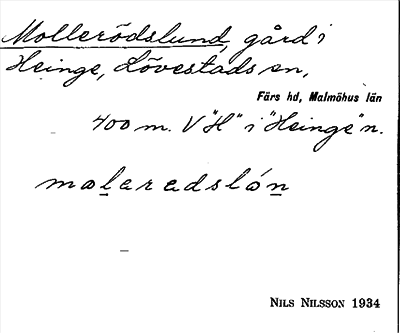 Mollerödslund, gård i
Heinge, Lövestads sn,
Färs hd, Malmöhus län
400 m. V "H" i "Heinge" n.
moḻaradsló̱n
NILS NILSSON 1934